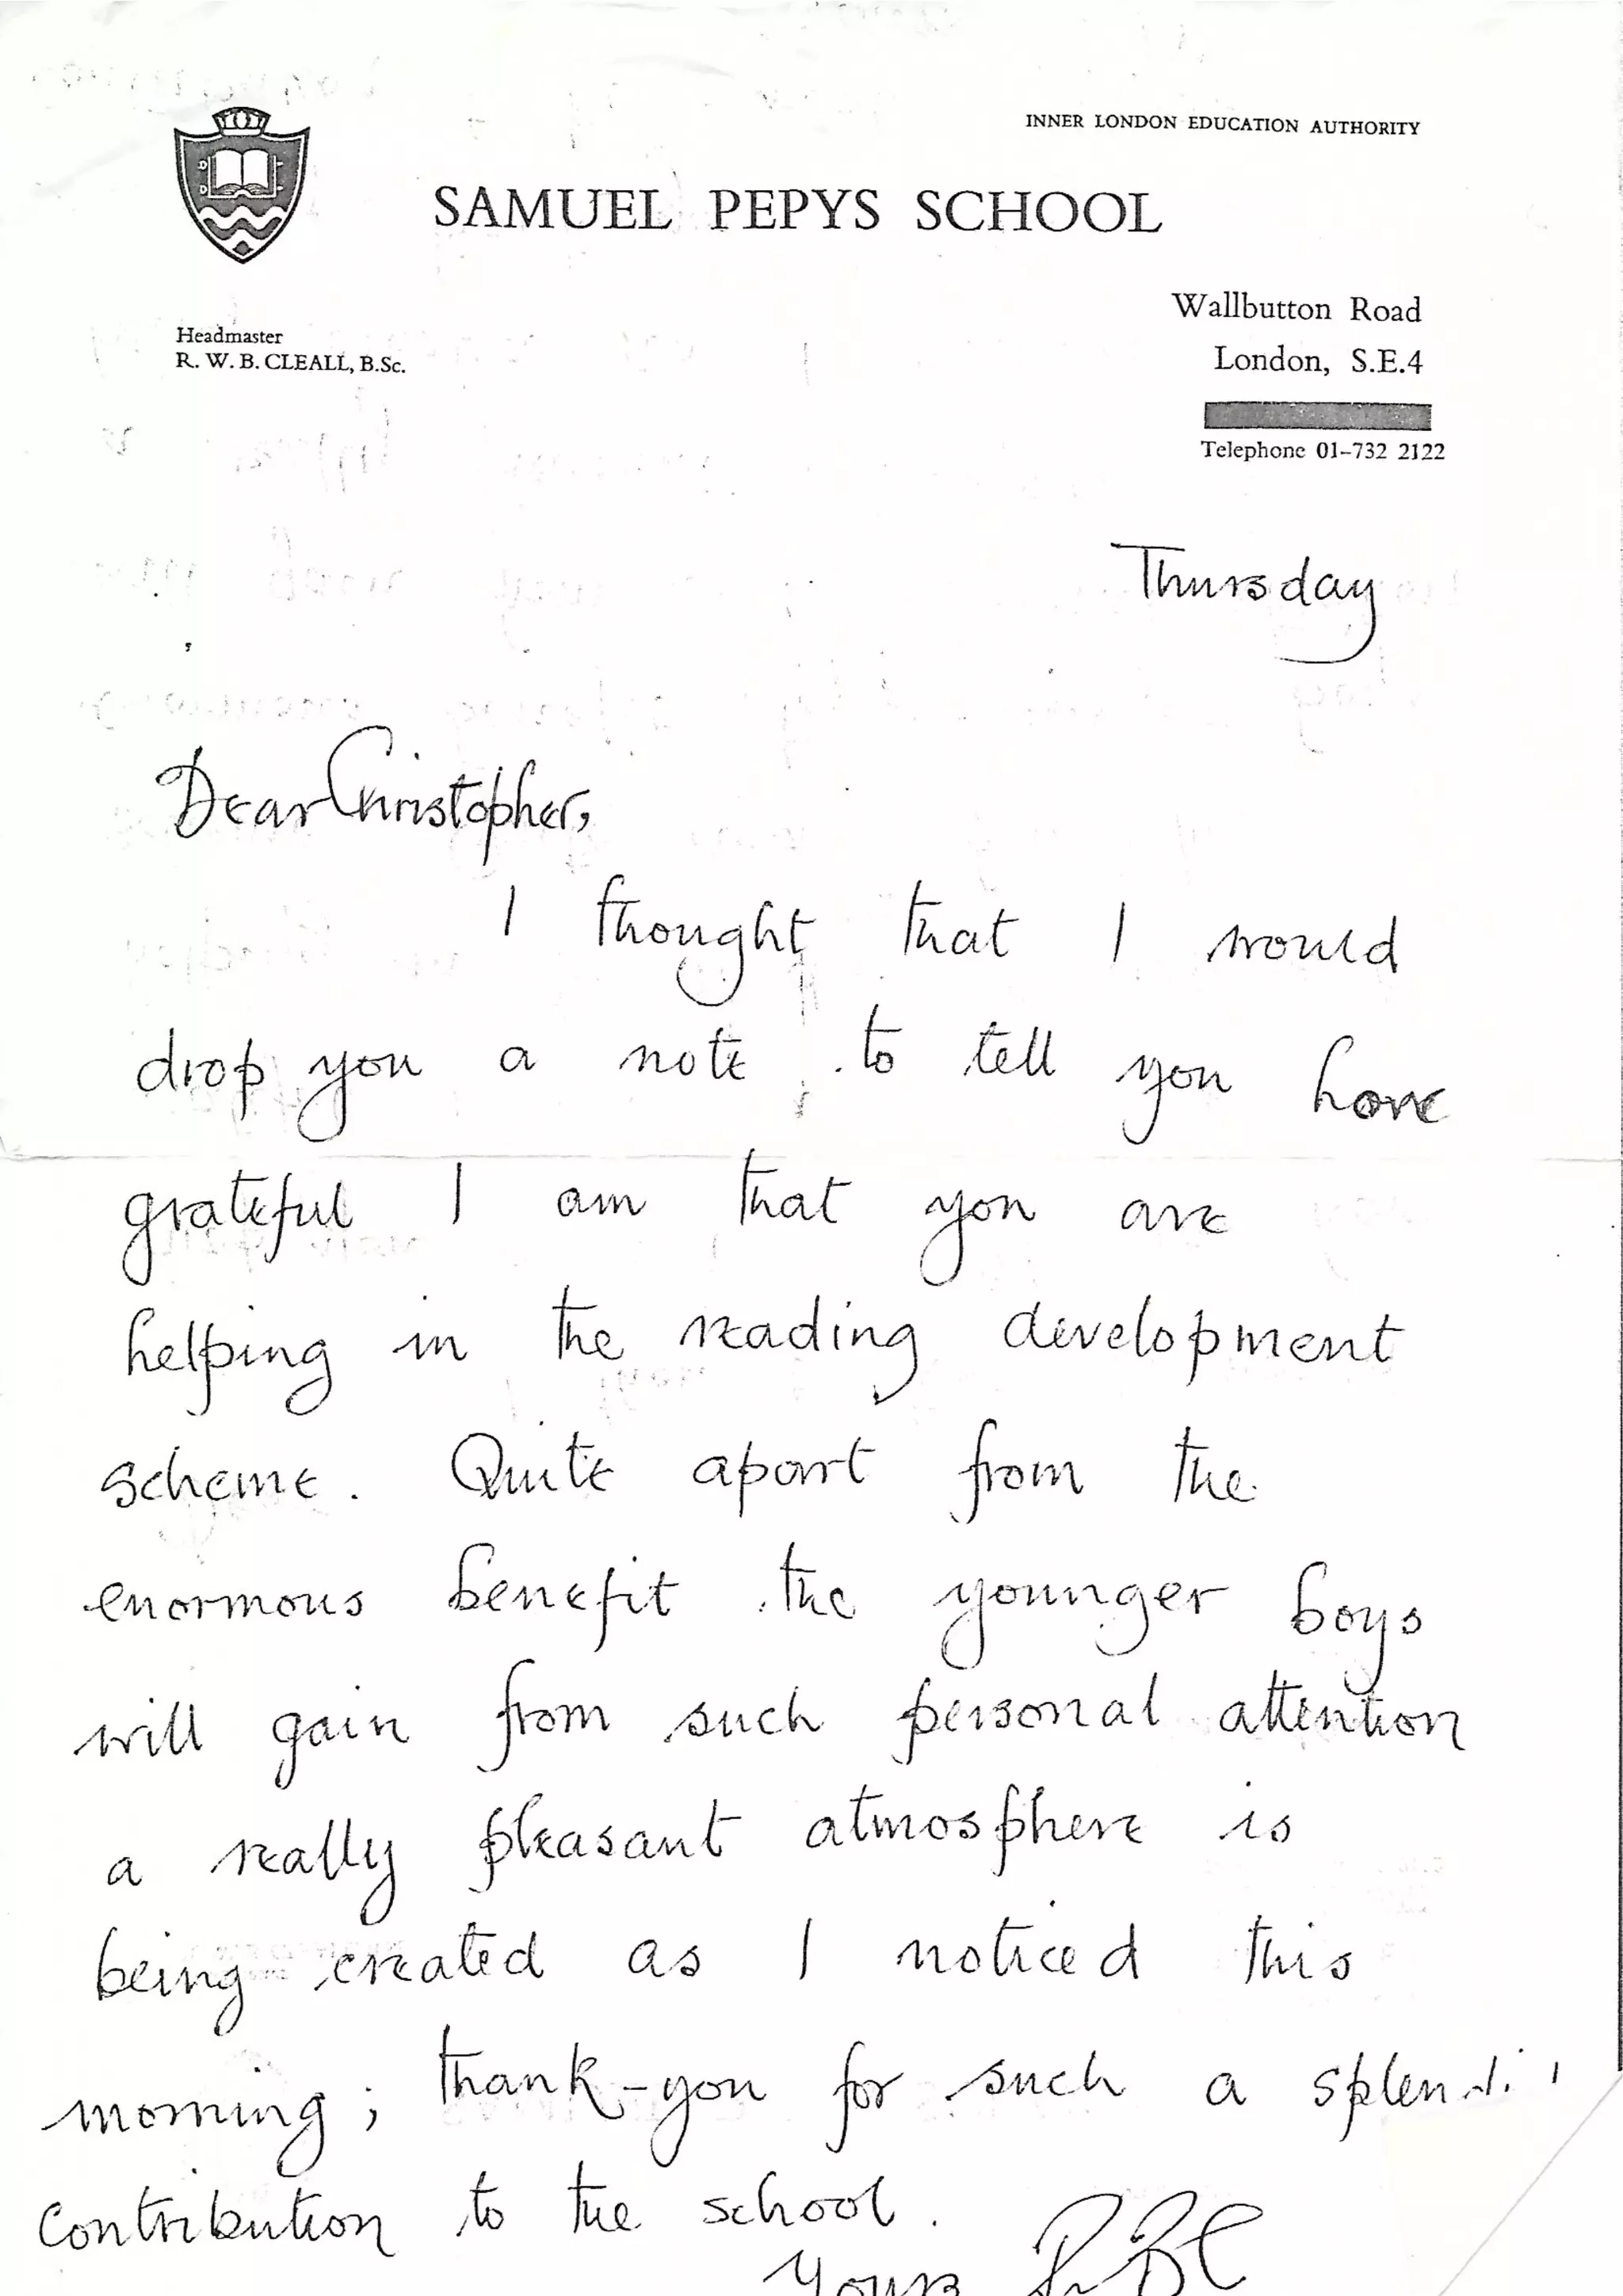 INNER LONDON EDUCATION AUTHORITY
SAMUEL PEPYS SCHOOL
Wallbutton Road
London, S.E.4
Headmaster
R. W. B. CLEALL, B.Sc.
Telephone 01-732 2122
Thursday
Dear Christopher,
I thought that I would
drop you a note to tell you how
grateful I am that you are
helping in the reading development
scheme. Quite apart from the
enormous benefit the younger boys
will gain from such personal attention
a really pleasant atmosphere is
being created as I noticed this
morning; thank-you for such a
contribution to the school.
Yours